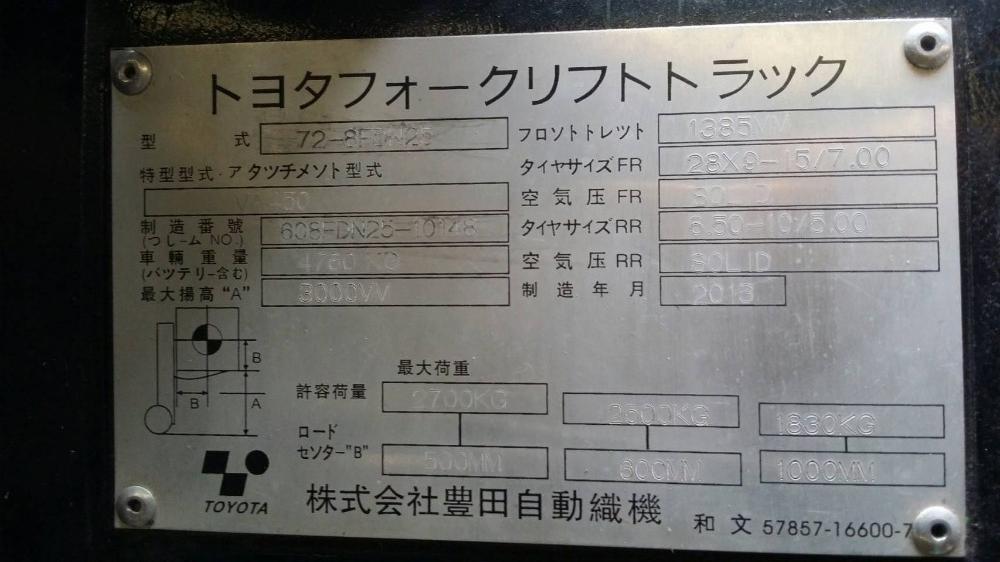 トヨタフォークリフトトラック
型 式 72-8FDN25
フロソトトレツト 1385MM
特型型式・アタツチメソト型式
タイヤサイズFR 28X9-15/7.00
空気圧FR SOLID
制造番號 608FDN25-10148
(つレ-ムNO.)
タイヤサイズRR 6.50-10/5.00
車輛重量
(バツテリ-含む)
空気圧RR SOLID
最大揚高"A" 3000MM
制造年月 2013
B
B A
最大荷重
許容荷量 2700KG 2500KG 1830KG
ロード
セソタ-"B" 500MM 600MM 1000MM
TOYOTA
株式会社豊田自動織機
和文 57857-16600-7